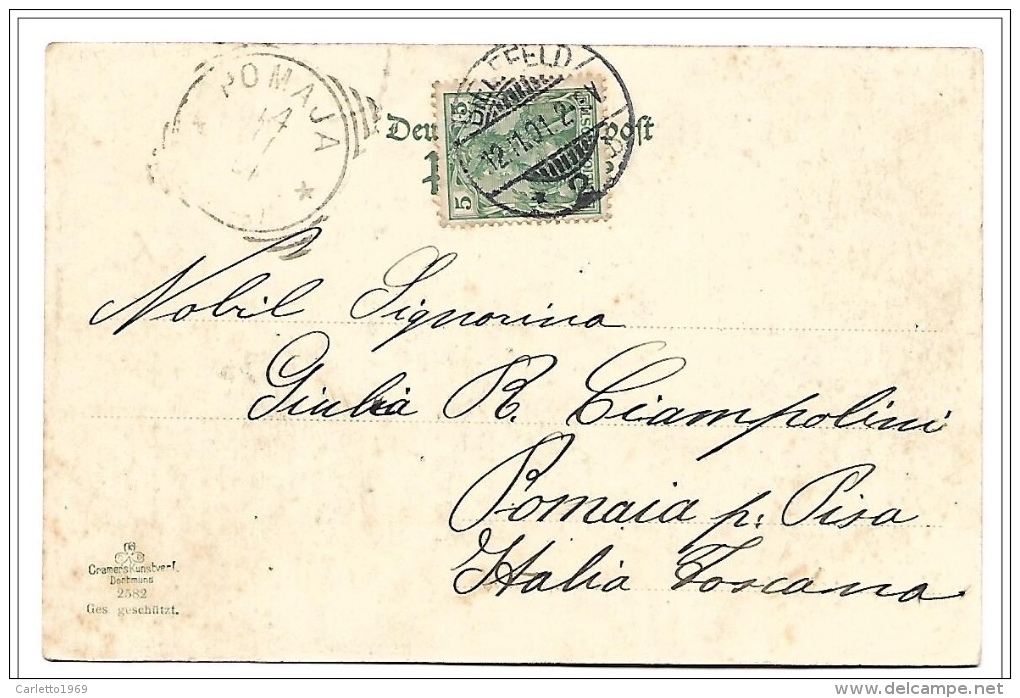 POMAJA
14
BIELEFELD
12.11.01.2-3N
* 2
5 5
Nobil Signorina
Giulia R. Ciampolini
Pomaia p. Pisa
Italia Toscana
Cramers Kunstverl.
Dortmund
2582
Ges. geschützt.
Carletto1969
delcampe.net